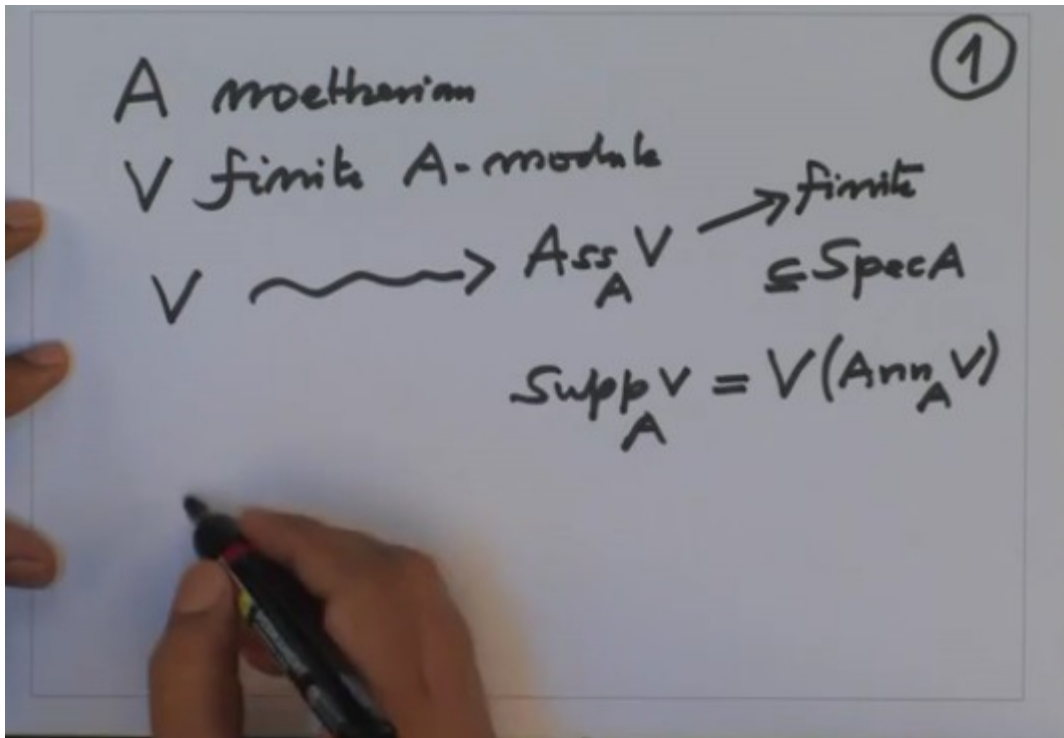 ①
A noetherian
V finite A-module
V ⟿ Ass_A V → finite
⊆ Spec A
Supp_A V = V(Ann_A V)